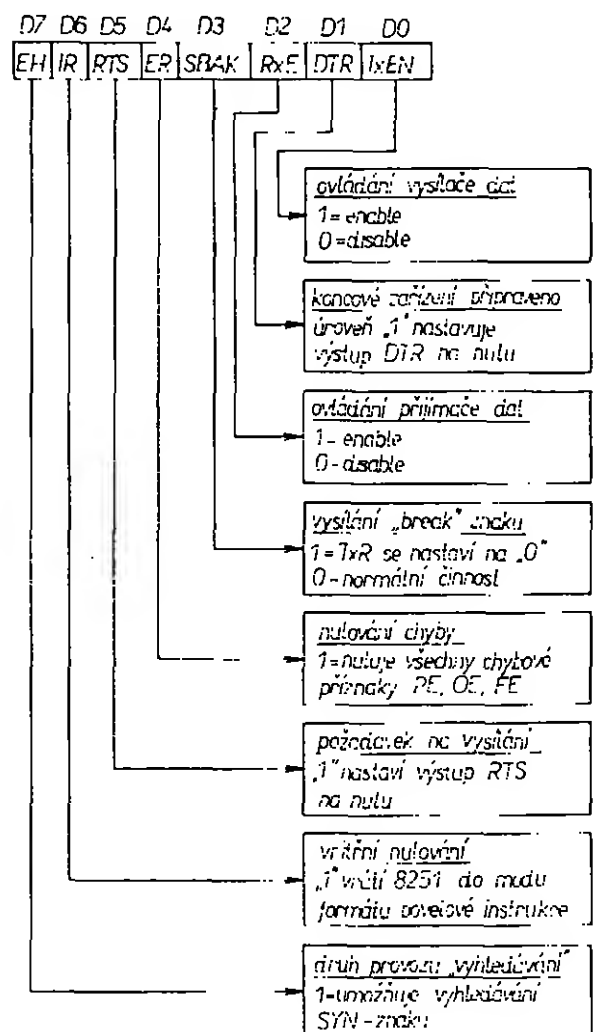 D7 D6 D5 D4 D3 D2 D1 D0
EH IR RTS ER SBAK RxE DTR TxEN
ovládání vysílače dat
1=enable
0=disable
koncové zařízení připraveno
úroveň „1" nastavuje
výstup DTR na nulu
ovládání přijímače dat
1-enable
0-disable
vysílání „break" znaku
1=TxR se nastaví na „0"
0-normální činnost
nulování chyby
1=nuluje všechny chybové
příznaky PE, OE, FE
požadavek na vysílání
„1" nastaví výstup RTS
na nulu
vnitřní nulování
„1" vrátí 8251 do modu
formátu povelové instrukce
druh provozu „vyhledávání"
1-umožňuje vyhledávání
SYN-znaku